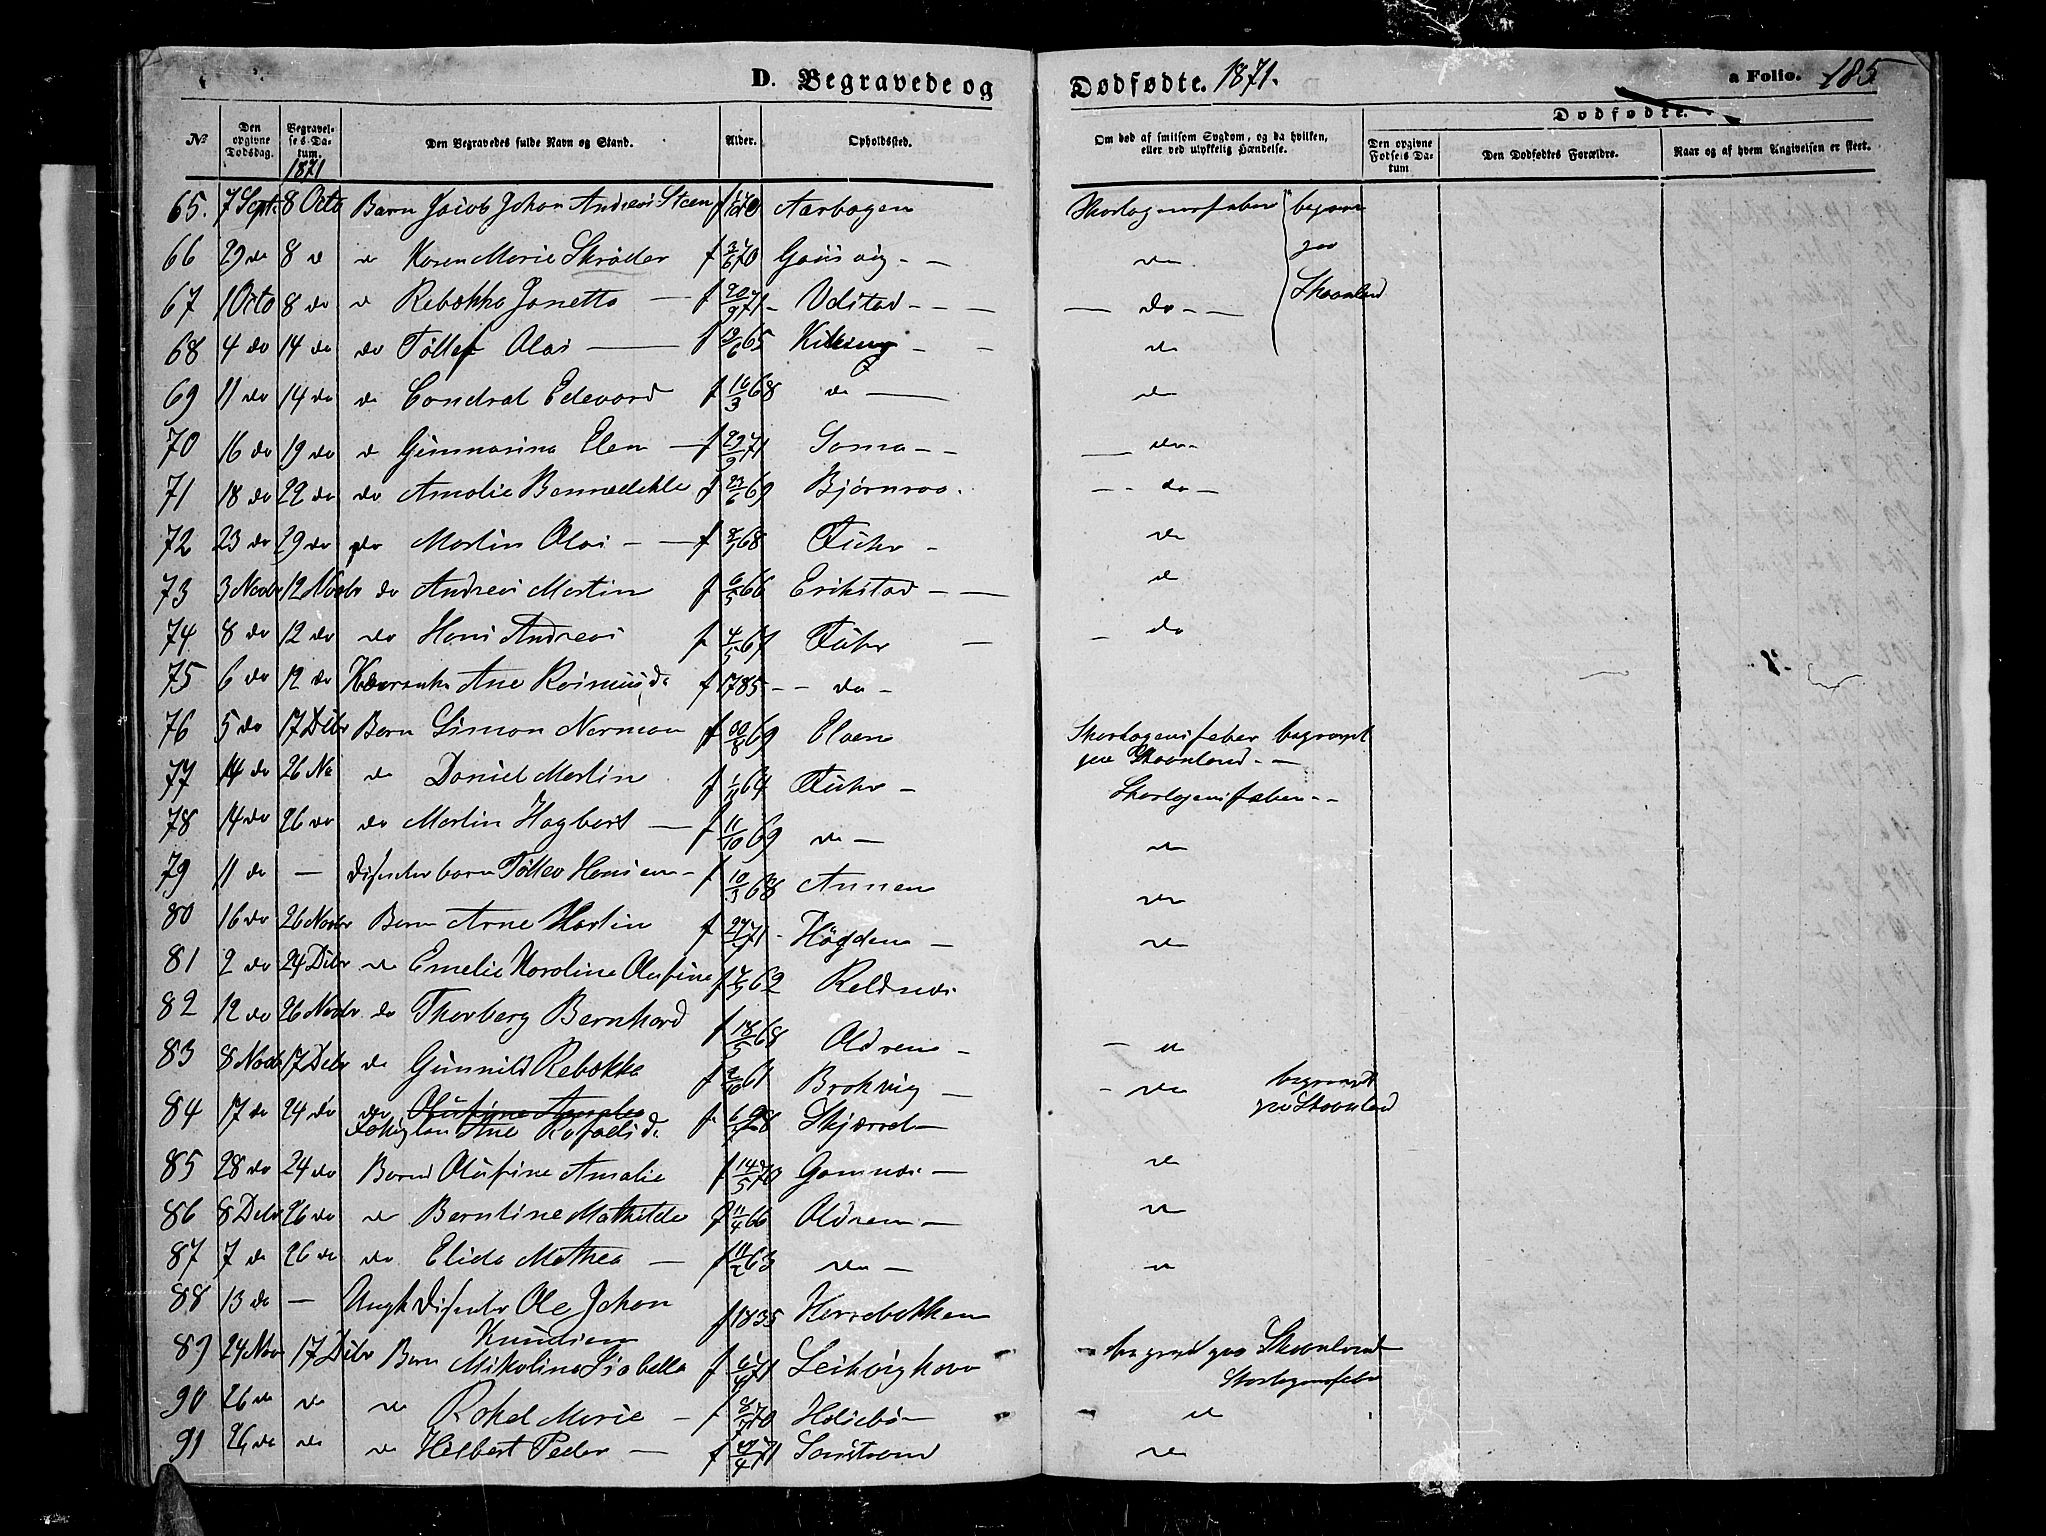 D. Begravede og Dødfødte. 1871. a Folio. 185
Dødfødte.
No Den opgivne Dødsdag. Begravelses-Datum. 1871 Den Begravedes fulde Navn og Stand. Alder. Opholdssted. Om død af smitsom Sygdom, og da hvilken, eller ved ulykkelig Hændelse. Den opgivne Fødsels Datum Den Dødfødtes Forældre. Naar og af hvem Angivelsen er skeet.
65. 7 Sept. 8 Octo Barn Jacob Johan Andreas Steen f Aarbogen Skarlagensfeber begravet
66 29 do 8 d d Karen Marie Skrøder f 3/6 70 Gausvig do paa
67 1 Octo 8 do d Rebekka Janetta f 20/9 71 Udstad do Skaanland
68 4 do 14 do do Tollef Olai f 12/6 65 Kileng do
69 11 do 14 do do Condrad Edevard f 16/3 68 do do
70 16 do 19 do d Gunnarina Elen f 29/9 71 Sama do
71 18 do 22 do do Amalie Bennedikte f 23/6 69 Bjørnraa do
72 23 do 29 do do Martin Olai f 68 do
73 3 Novbr 12 Novbr do Andreas Martin f 6/5 66 Erikstad do
74 8 do 12 do do Hans Andreas f 4/5 67 do
75 6 do 12 do Ane Rasmusd. f 1785 do
76 5 do 17 Decbr Barn Simon Norman f 69 Elven Skarlagensfeber begravet
paa Skaanland
77 14 do 26 No do Daniel Martin f 1/11 64 Skarlagensfeber
78 14 do 26 do do Martin Hagbart f 11/10 69 do do
79 11 do — Disenterbarn Tollev Hansen f 10/3 68 Annen do
80 16 do 26 Novbr Barn Arne Martin f 27/7 71 Høgden do
81 2 do 24 Decbr do Emelie Karoline Olufine f 62 Reldnæs
82 12 do 26 Novbr do Thorberg Bernhard f 18/5 68 Aldren do
83 8 Novb 17 Decbr do Gunnild Rebekka f 2/10 61 Brokvig do begravet
paa Skaanland
84 17 do 24 do do Olufine Amalie
Ane Rafaelsd. f Skjærred
85 28 do 24 do Barn Olufine Amalie f 14/5 70 Gamnæs do
86 8 Decbr 26 do do Berntine Mathilde f 11/4 66 Aldren do
87 7 do 26 do do Elida Mathea f 11/2 63 do do
88 13 do — Ungk Disenter Ole Johan
Knudsen f 1835 Herrebakken
89 24 Nov 17 Decbr Barn Mikoline Isabella f 71 Leikvighavn begravet paa Skaanland
Skarlagensfeber
90 26 do do do Rakel Marie f 8/7 70 do
91 26 do do do Hilbert Peder f 71 Sandstrand do